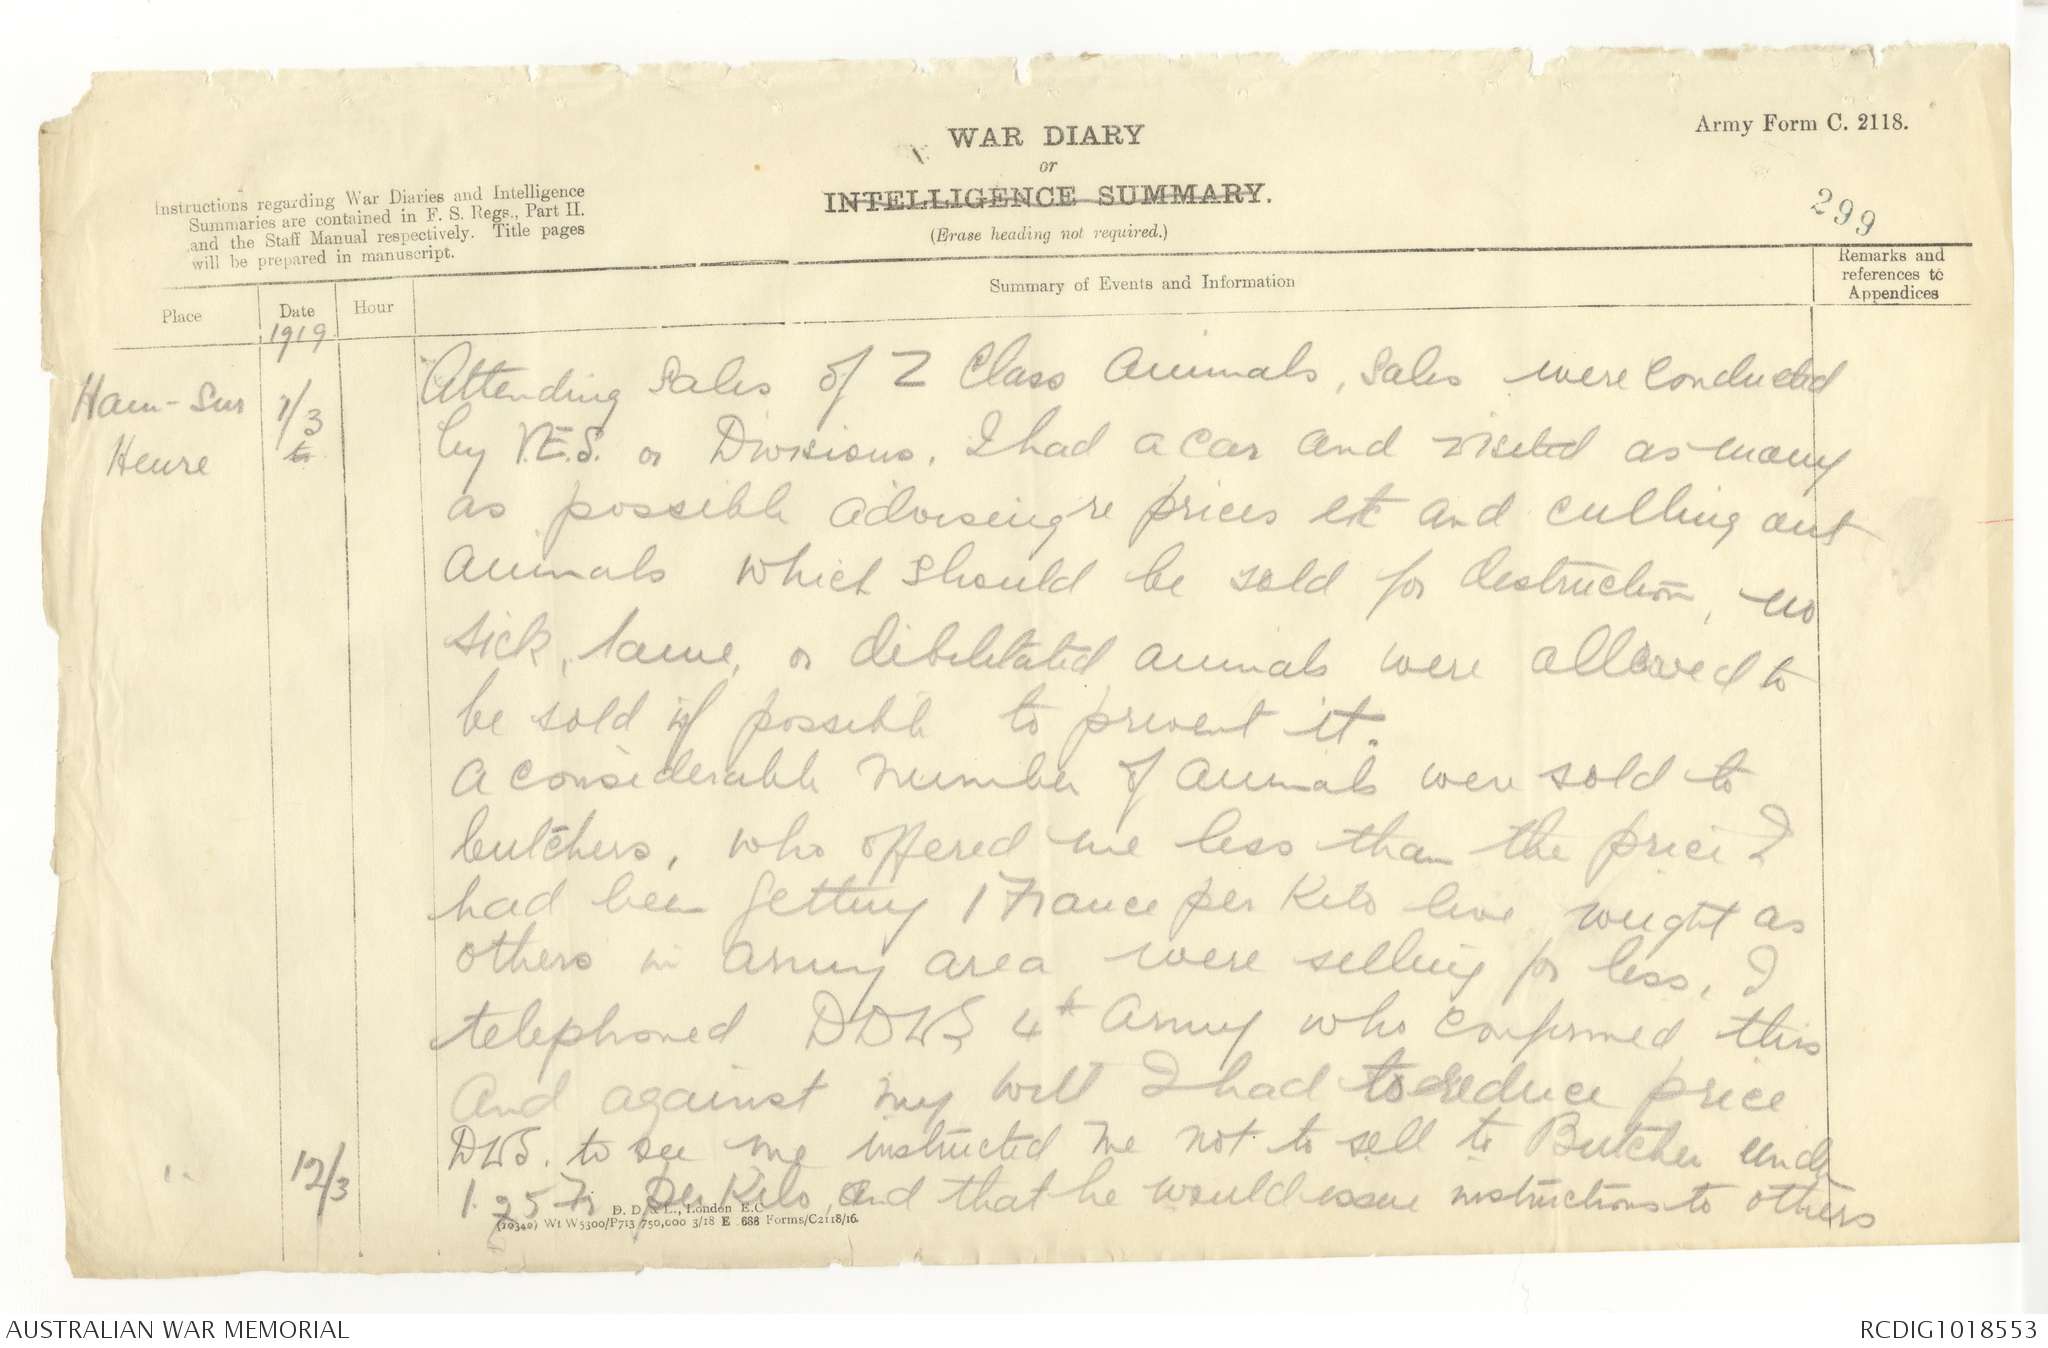 WAR DIARY
or
INTELLIGENCE SUMMARY.
(Erase heading not required.)
Army Form C. 2118.
299
Instructions regarding War Diaries and Intelligence
Summaries are contained in F. S. Regs., Part II.
and the Staff Manual respectively. Title pages
will be prepared in manuscript.
Place
Date
1919
Hour
Summary of Events and Information
Remarks and
references to
Appendices
Ham-Sur
Heure
1/3
to
Attending Sales of Z Class Animals, Sales were conducted
by V.E.S. or Divisions. I had a car and visited as many
as possible advising re prices etc and culling out
animals which should be sold for destruction, no
sick, lame, or debilitated animals were allowed to
be sold if possible to prevent it.
A considerable number of animals were sold to
butchers, who offered me less than the price I
had been getting 1 France per Kilo live weight as
others in army area were selling for less, I
telephoned DDVS 4th Army who confirmed this
and against my will I had to reduce price
12/3
DVS. to see me instructed me not to sell to Butcher under
1.25 Fr per Kilo, and that he would issue instructions to others
D. D. & L., London E.C.
(10340) Wt W5300/P713 750,000 3/18 E 688 Forms/C2118/16.
AUSTRALIAN WAR MEMORIAL
RCDIG1018553